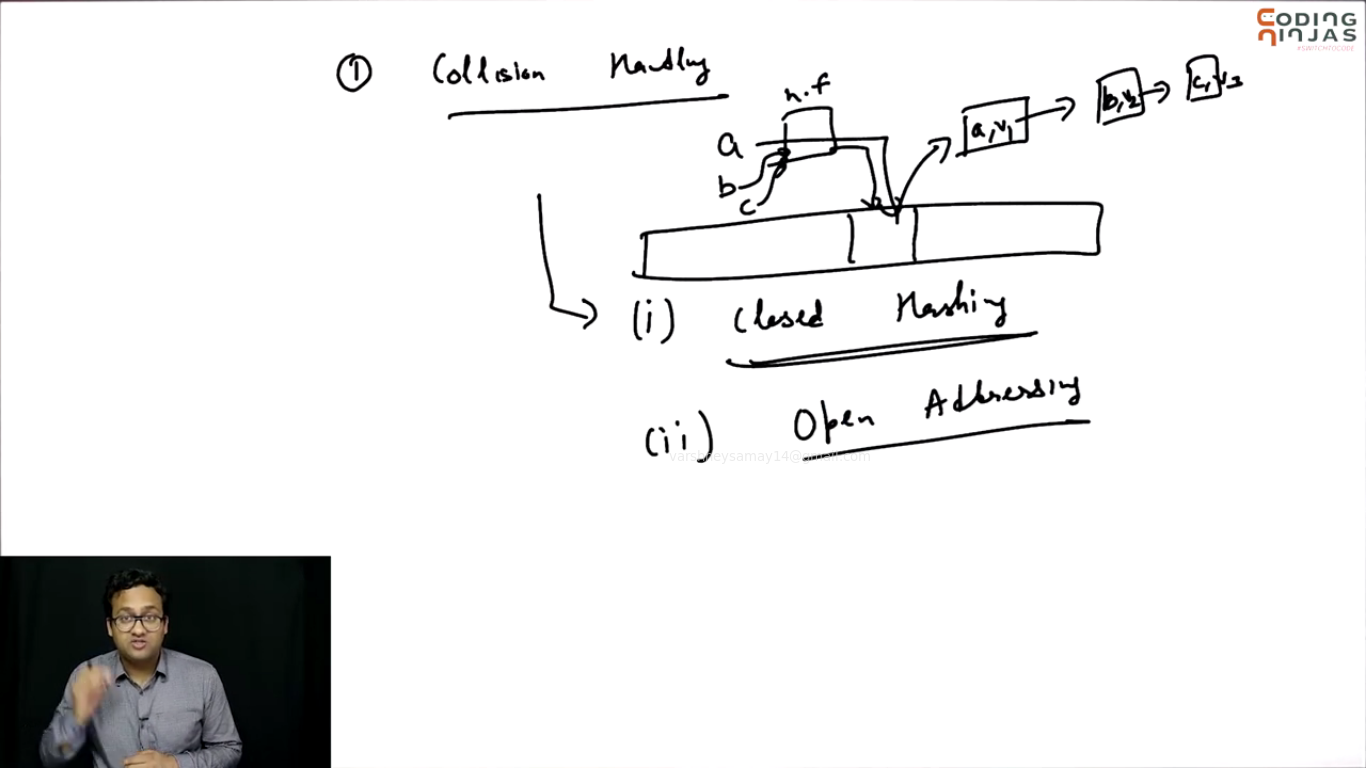 CODING NINJAS
#SWITCHTOCODE
① Collision Handling
h.f
a
b
c
a, v1
b, v2
c, v3
(i) Closed Hashing
(ii) Open Addressing
varshneysamay14@gmail.com